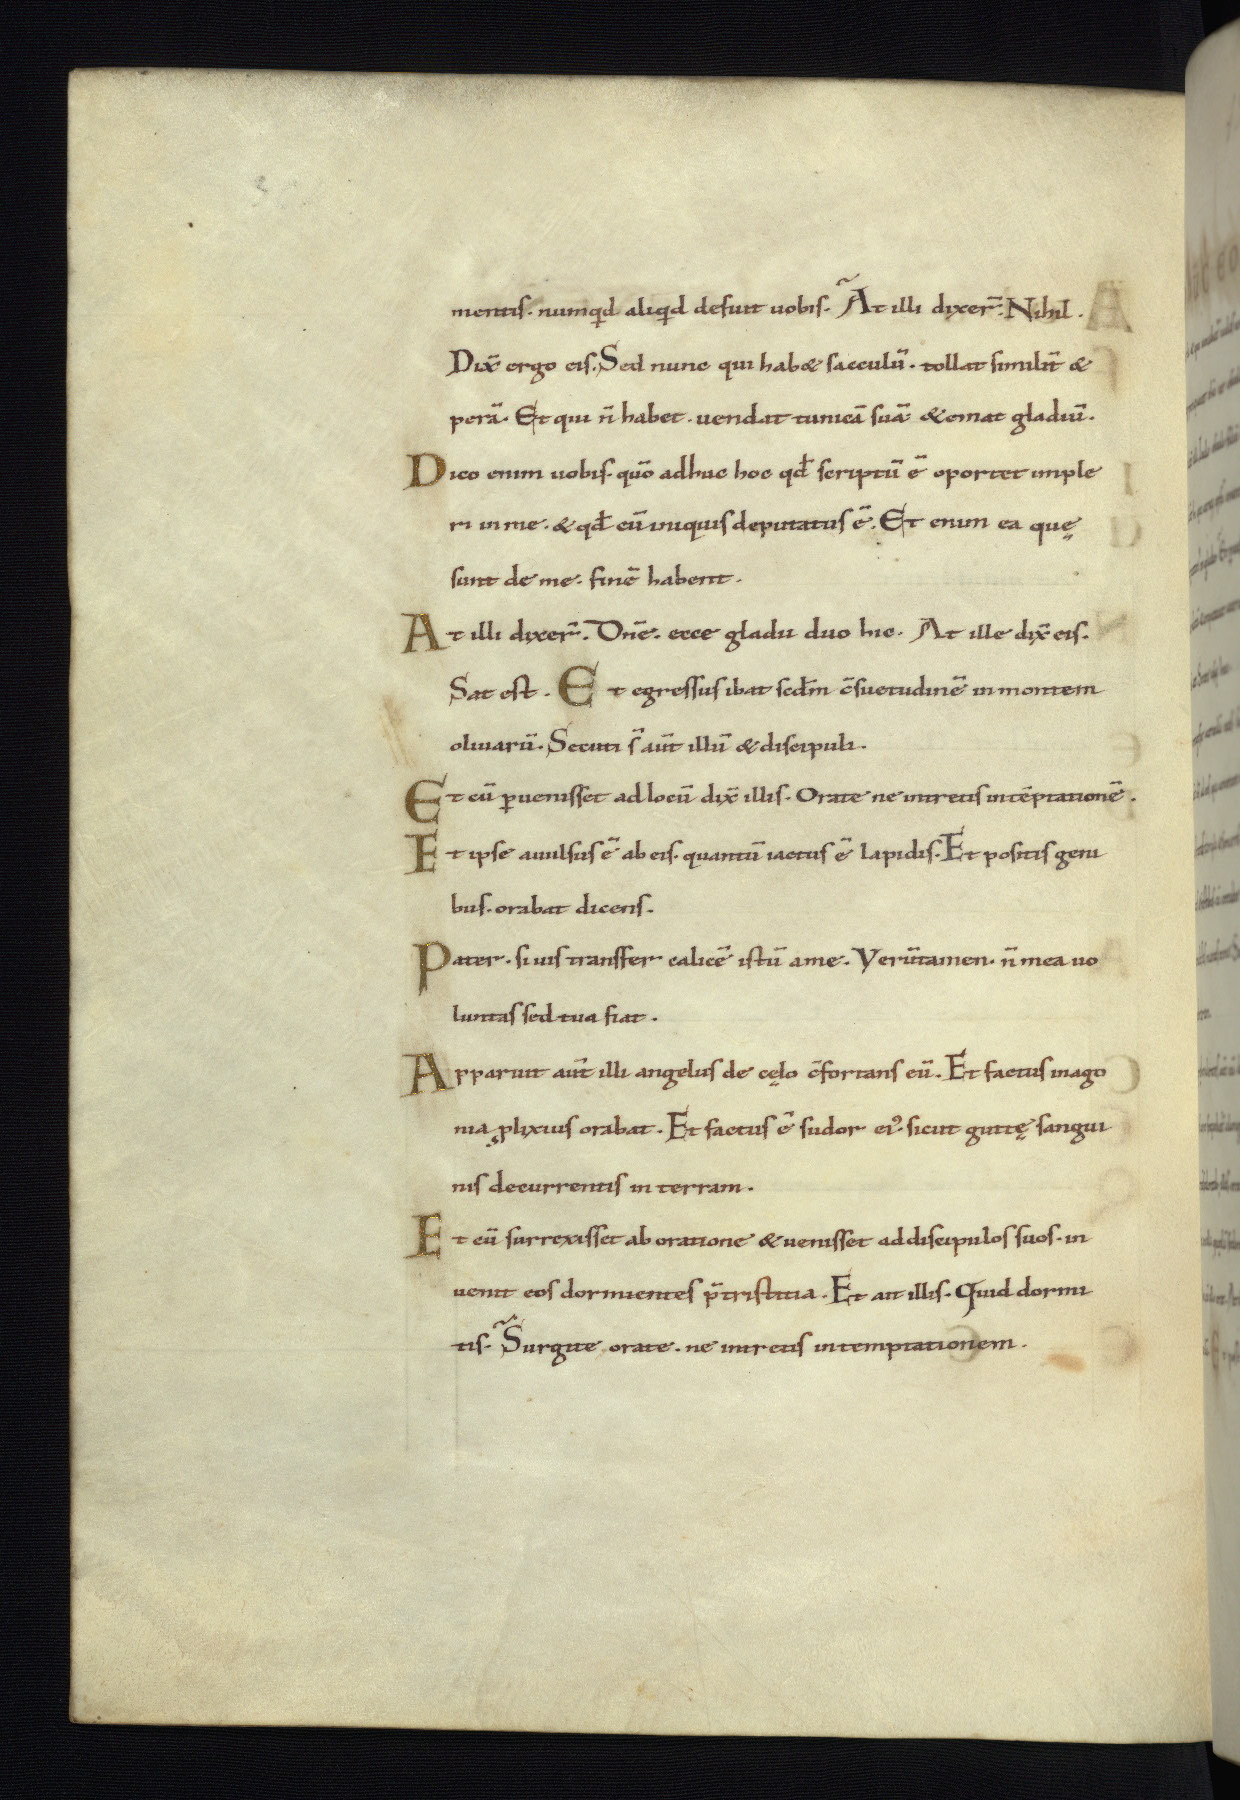 mentis. numqid aliqid defuit uobis. At illi dixer̄. Nihil.
Dix̄ ergo eis. Sed nunc qui hab& sacculū. tollat similit̄ &
perā. Et qui n̄ habet. uendat tunicā suā & emat gladiū.
Dico enim uobis. quō adhuc hoc qđ scriptū ē oportet imple
ri in me. & qđ cū iniquis deputatus ē. Et enim ea quę
sunt de me. finē habent.
At illi dixer̄. Dn̄e. ecce gladii duo hic. At ille dix̄ eis.
Sat est. Et egressus ibat scđm c̄suetudinē in montem
oliuarū. Secuti s̄ aūt illū & discipuli.
Et cū ꝑuenisset ad locū dix̄ illis. Orate ne intretis in tēptationē.
Et ipse auulsus ē ab eis. quantū iactus ē lapidis. Et positis geni
bus. orabat dicens.
Pater. si uis transfer calicē istū a me. Verūtamen. n̄ mea uo
luntas sed tua fiat.
Apparuit aūt illi angelus de cęlo c̄fortans eū. Et factus in ago
nia ꝓlixius orabat. Et factus ē sudor ei᾽. sicut guttę sangui
nis decurrentis in terram.
Et cū surrexisset ab oratione & uenisset ad discipulos suos. in
uenit eos dormientes p̄ tristitia. Et ait illis. Quid dormi
tis. Surgite orate. ne intretis in temptationem.